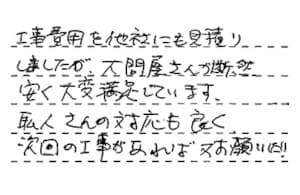 工事費用を他社にも見積り
しましたが、大問屋さんが断然
安く大変満足しています。
職人さんの対応も良く
次回の工事があればお願いだ!